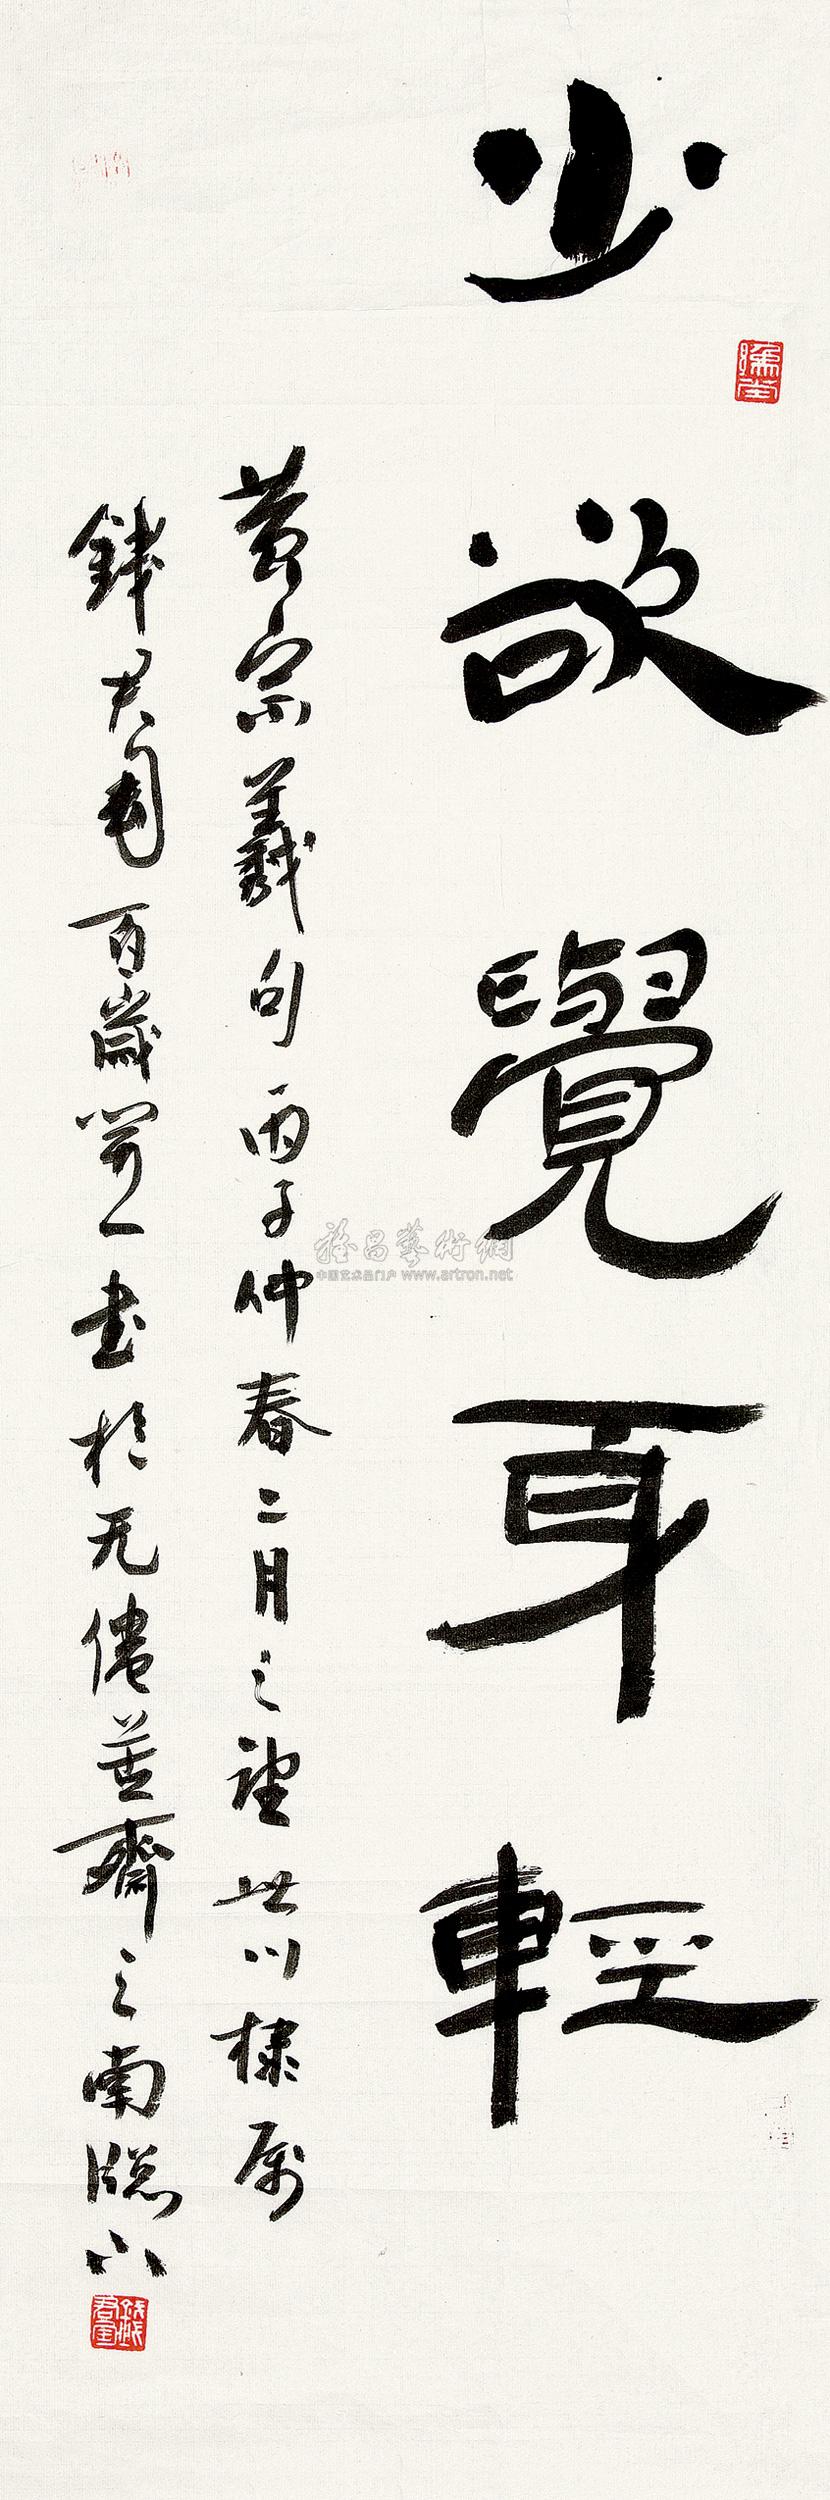 少欲覺身輕
黃宗羲句丙子仲春二月之望世川棣属
錢君匋百歲開一书於无倦苦齋之南牕下
中国艺术品门户 www.artron.net